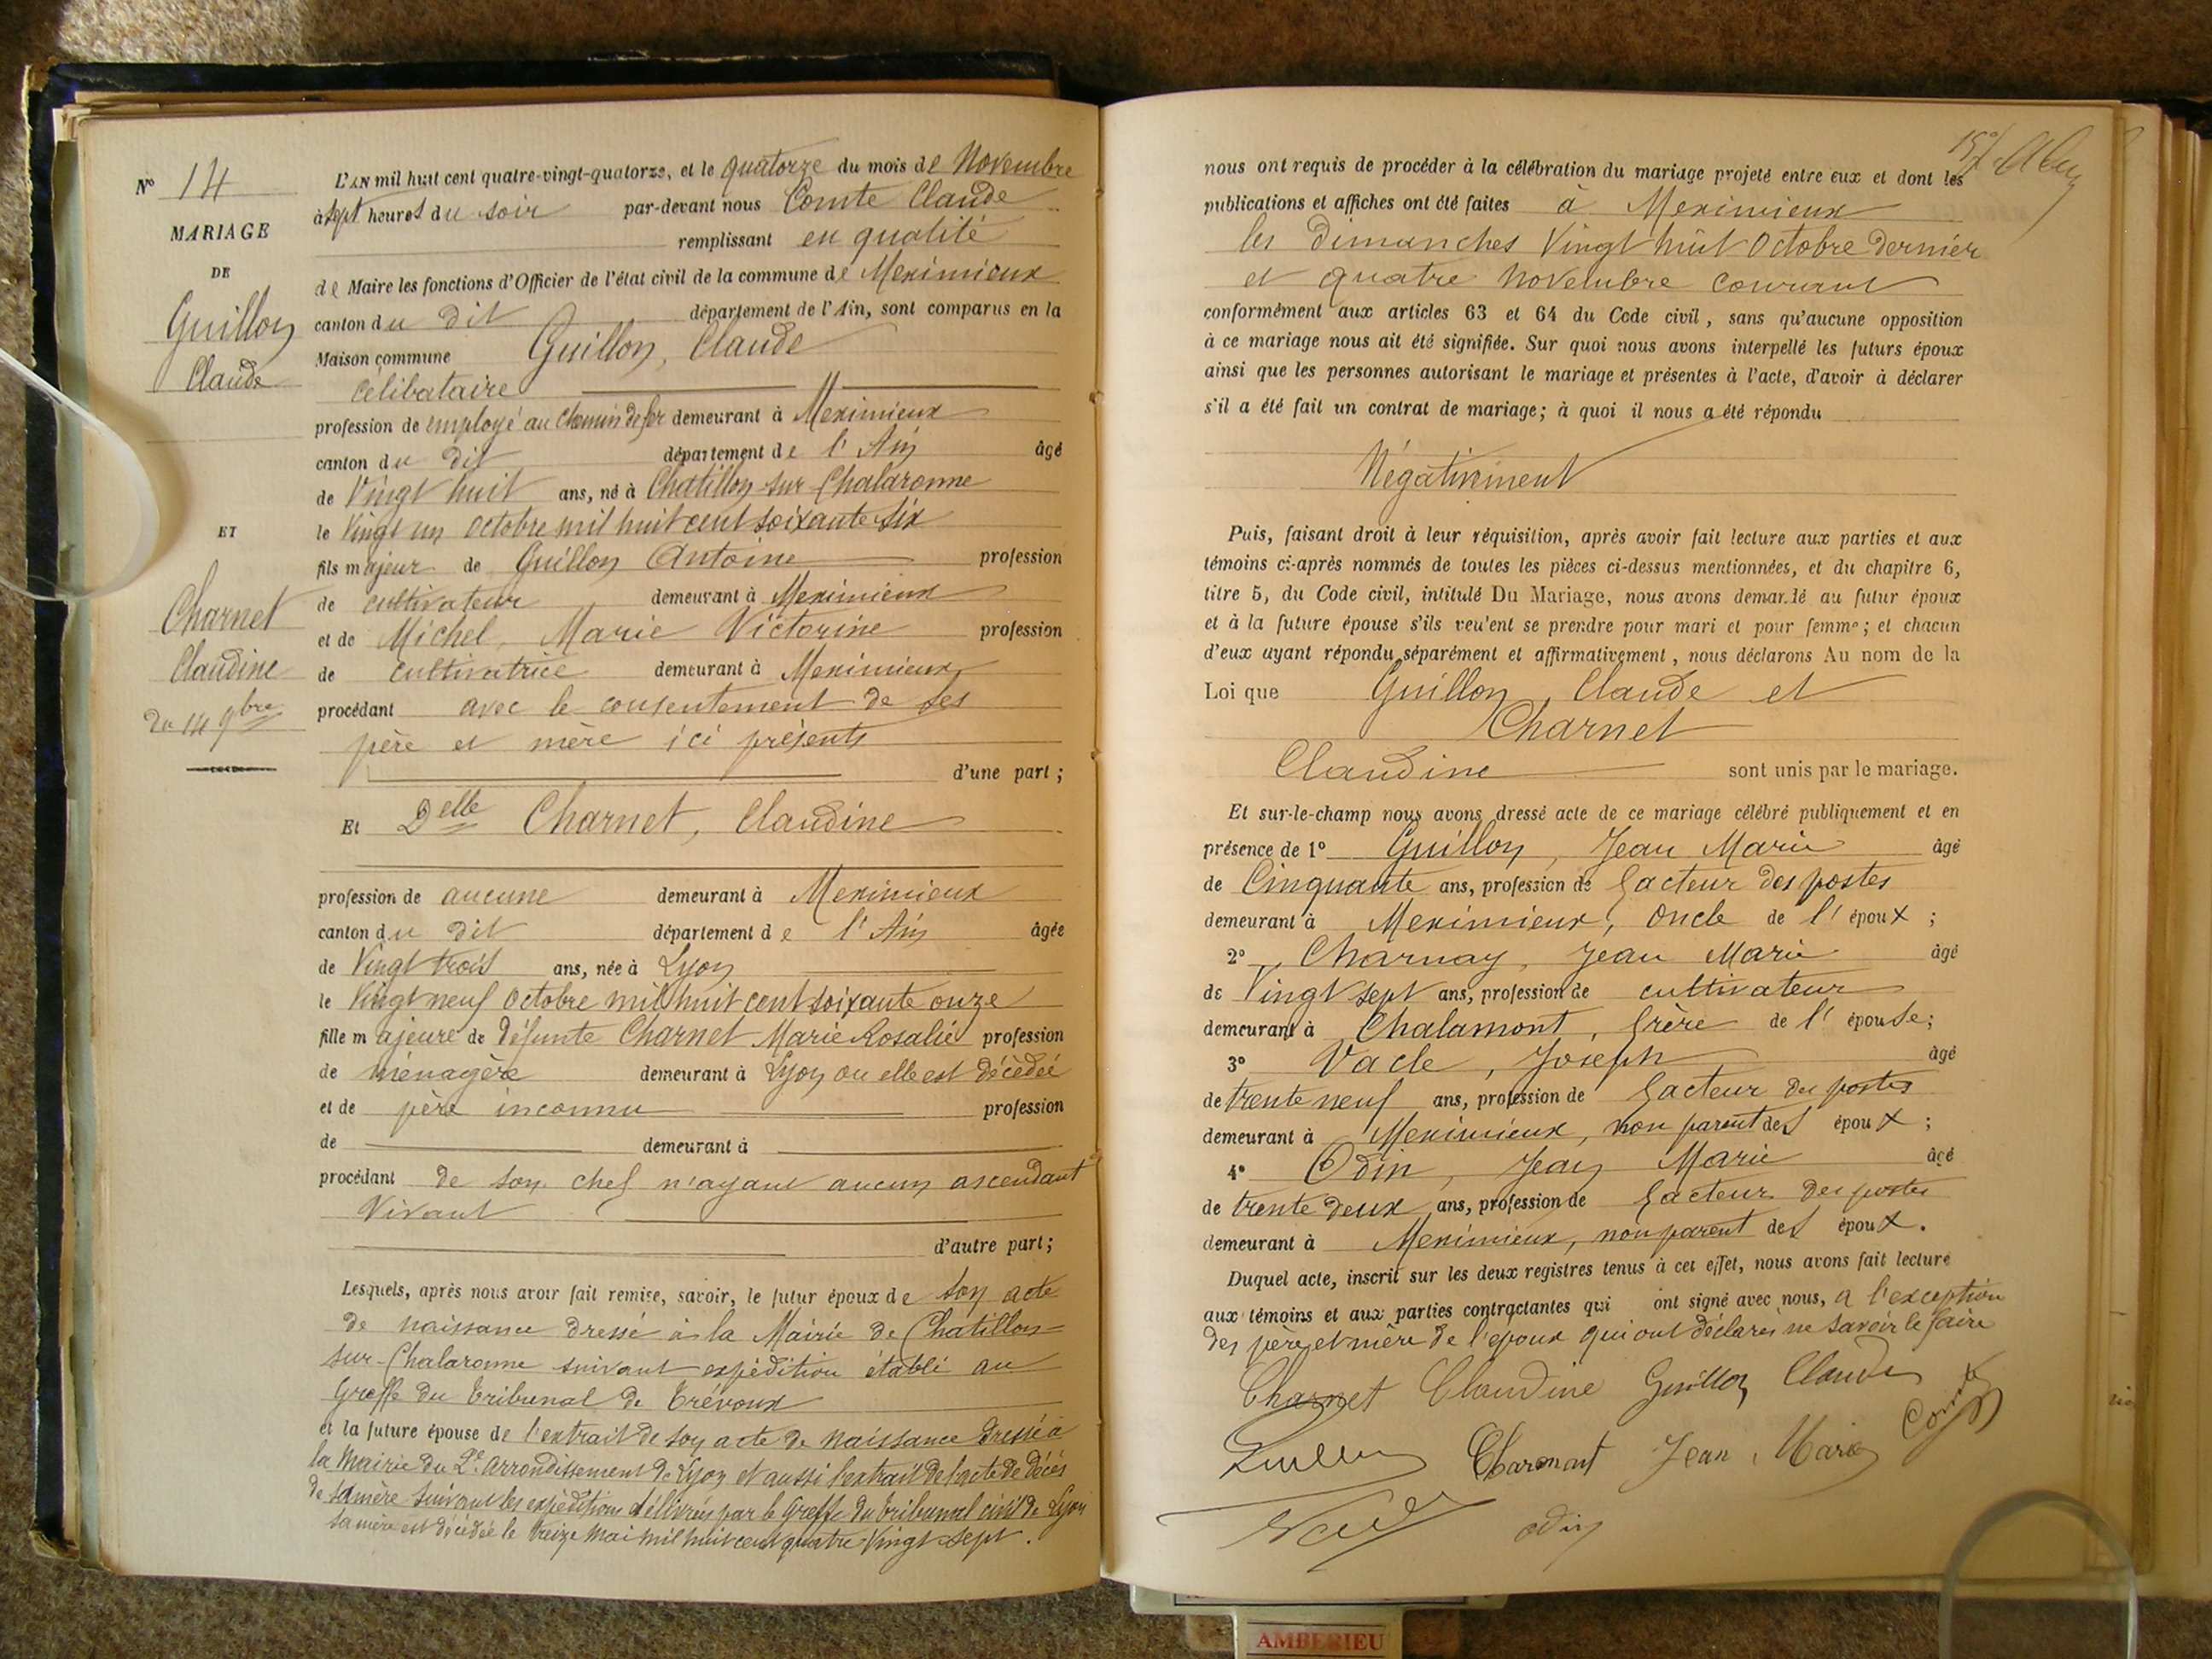 N° 14
MARIAGE
DE
Guillon
Claude
ET
Charnet
Claudine
Du 14 9bre
L'AN mil huit cent quatre-vingt-quatorze, et le quatorze du mois de Novembre
à sept heures du soir par-devant nous Comte Claude
remplissant en qualité
de Maire les fonctions d'Officier de l'état civil de la commune de Meximieux
canton du dit département de l'Ain, sont comparus en la
Maison commune Guillon, Claude
célibataire
profession de employé au chemin de fer demeurant à Meximieux
canton du dit département de l'Ain âgé
de Vingt huit ans, né à Chatillon sur Chalaronne
le Vingt un octobre mil huit cent soixante six
fils majeur de Guillon Antoine profession
de cultivateur demeurant à Meximieux
et de Michel, Marie Victorine profession
de cultivatrice demeurant à Meximieux
procédant avec le consentement de ses
père et mère ici présents
d'une part ;
Et Delle Charnet, Claudine
profession de aucune demeurant à Meximieux
canton du dit département de l'Ain âgée
de Vingt trois ans, née à Lyon
le Vingt neuf Octobre mil huit cent soixante onze
fille majeure de défunte Charnet Marie Rosalie profession
de ménagère demeurant à Lyon ou elle est décédée
et de père inconnu profession
de demeurant à
procédant de son chef n'ayant aucun ascendant
Vivant
d'autre part;
Lesquels, après nous avoir fait remise, savoir, le futur époux de son acte
de naissance dressé à la Mairie de Chatillon-
sur-Chalaronne suivant expédition établi au
Greffe du tribunal de Trévoux
et la future épouse de l'extrait de son acte de naissance dressé à
la Mairie du 2e arrondissement de Lyon et aussi l'extrait de l'acte de décès
de sa mère suivant les expéditions délivrées par le Greffe du tribunal civil de Lyon
sa mère est décédée le treize Mai mil huit cent quatre Vingt sept.
nous ont requis de procéder à la célébration du mariage projeté entre eux et dont les
publications et affiches ont été faites à Meximieux
les dimanches Vingt huit Octobre dernier
et quatre novembre courant
conformément aux articles 63 et 64 du Code civil, sans qu'aucune opposition
à ce mariage nous ait été signifiée. Sur quoi nous avons interpellé les futurs époux
ainsi que les personnes autorisant le mariage et présentes à l'acte, d'avoir à déclarer
s'il a été fait un contrat de mariage; à quoi il nous a été répondu
Négativement
Puis, faisant droit à leur réquisition, après avoir fait lecture aux parties et aux
témoins ci-après nommés de toutes les pièces ci-dessus mentionnées, et du chapitre 6,
titre 5, du Code civil, intitulé Du Mariage, nous avons demandé au futur époux
et à la future épouse s'ils veulent se prendre pour mari et pour femme; et chacun
d'eux ayant répondu séparément et affirmativement, nous déclarons Au nom de la
Loi que Guillon, Claude et
Charnet
Claudine sont unis par le mariage.
Et sur-le-champ nous avons dressé acte de ce mariage célébré publiquement et en
présence de 1° Guillon, Jean Marie âgé
de Cinquante ans, profession de facteur des postes
demeurant à Meximieux, oncle de l'époux ;
2° Charnay, Jean Marie âgé
de Vingt sept ans, profession de cultivateur
demeurant à Chalamont, frère de l'épouse;
3° Vacle, Joseph âgé
de trente neuf ans, profession de facteur des postes
demeurant à Meximieux, non parent des époux ;
4° Odin, Jean Marie âgé
de trente deux ans, profession de facteur des postes
demeurant à Meximieux, non parent des époux.
Duquel acte, inscrit sur les deux registres tenus à cet effet, nous avons fait lecture
aux témoins et aux parties contractantes qui ont signé avec nous, a l'exception
des père et mère de l'époux qui ont déclarés ne savoir le faire
Charnet Claudine Guillon Claude
Comte
Charmont Jean Marie
odin
AMBERIEU